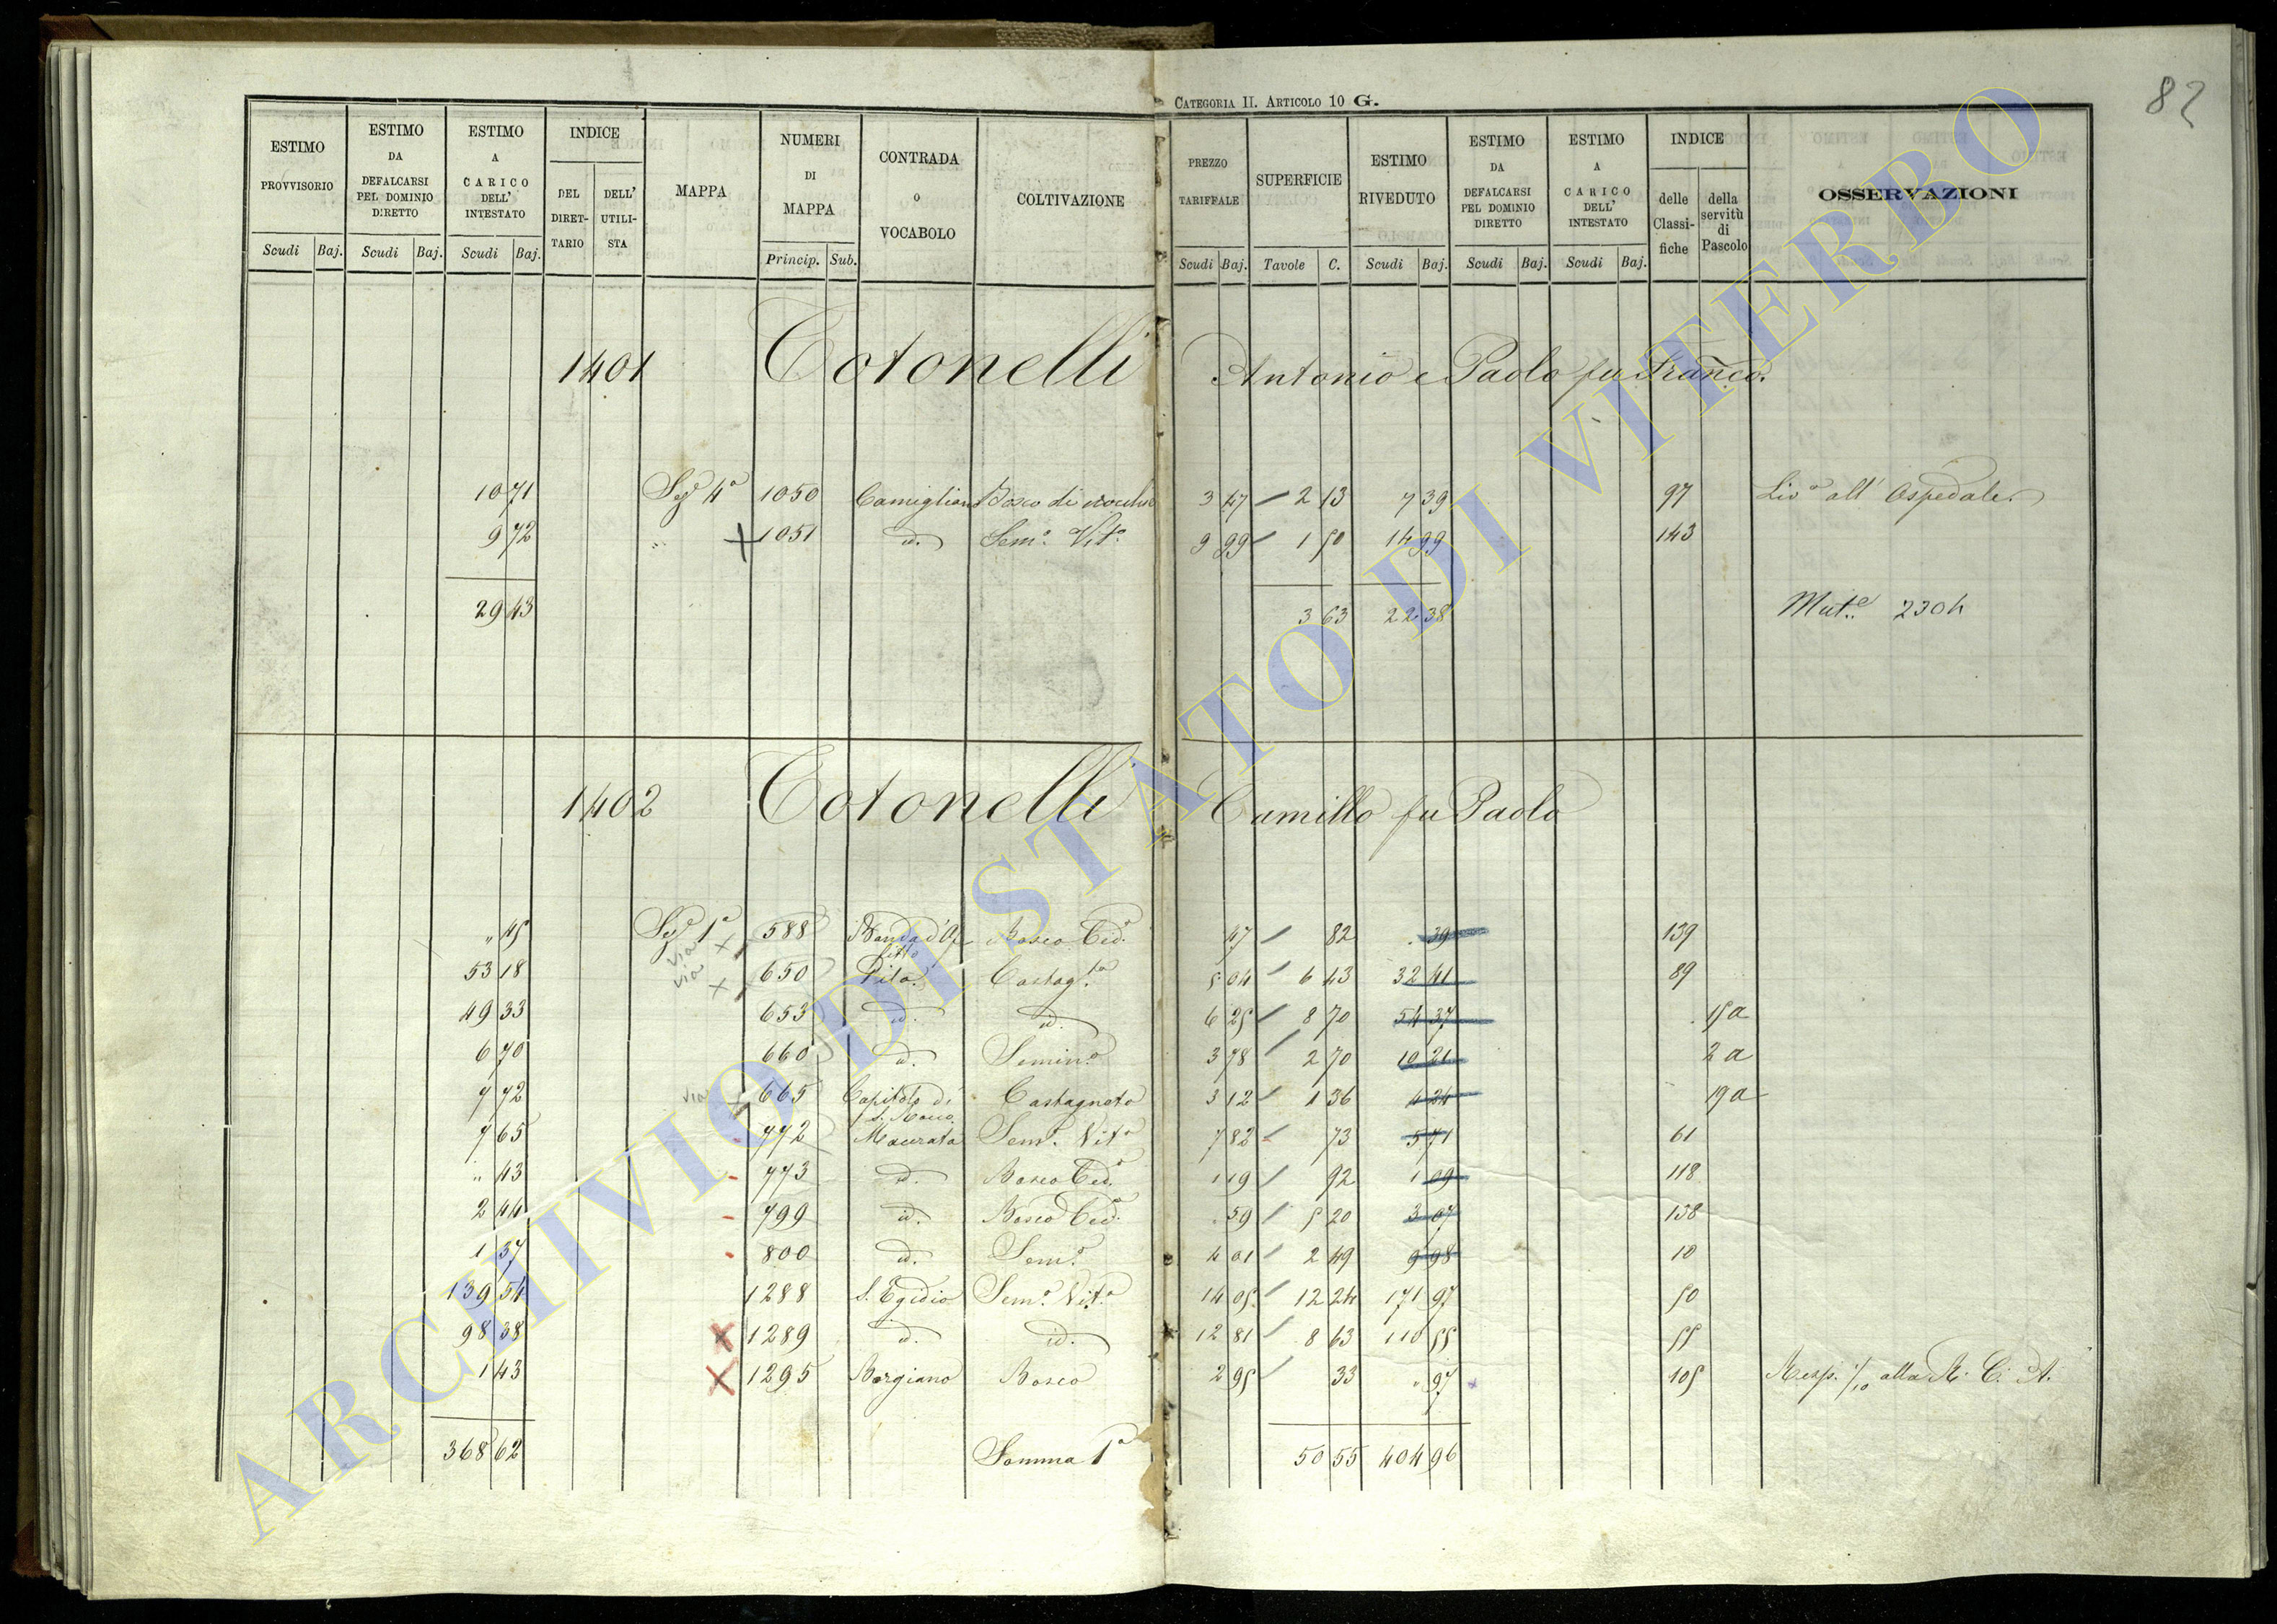 82
CATEGORIA II. ARTICOLO 10 G.
ESTIMO PROVVISORIO Scudi Baj. ESTIMO DA DEFALCARSI PEL DOMINIO DIRETTO Scudi Baj. ESTIMO A CARICO DELL' INTESTATO Scudi Baj. INDICE DEL DIRETTARIO DELL' UTILISTA MAPPA NUMERI DI MAPPA Princip. Sub. CONTRADA O VOCABOLO COLTIVAZIONE PREZZO TARIFFALE Scudi Baj. SUPERFICIE Tavole C. ESTIMO RIVEDUTO Scudi Baj. ESTIMO DA DEFALCARSI PEL DOMINIO DIRETTO Scudi Baj. ESTIMO A CARICO DELL' INTESTATO Scudi Baj. INDICE delle Classifiche della servitù di Pascolo OSSERVAZIONI
1401 Totonelli Antonio e Paolo fu Franco.
10 71 Sez. 4a 1050 Camigliano Bosco di 3 47 2 13 7 39 97 Livo all' Ospedale
9 72 " 1051 id. Semo. Vito. 9 99 1 50 14 99 143
29 43 3 63 22 38 Mute. 2304
1402 Totonelli Camillo fu Paolo
" 45 Sez. 1a via 588 Bosco Ced. 47 82 . 39 139
53 18 via 650 Pila. Castagto. 5 04 6 43 32 41 89
49 33 653 id. id. 6 25 8 70 54 37 15a
6 70 660 id. Semino 3 78 2 70 10 21 2a
7 72 via 665 Capitolo di S. Rocco Castagneto 3 12 1 36 4 24 19a
7 65 772 Macerata Semo. Vito 7 82 73 5 71 61
" 43 773 id. Bosco Ced. 1 19 92 1 09 118
2 44 799 id. Bosco Ced. . 59 5 20 3 07 138
1 37 800 id. Semo. 4 01 2 49 9 98 10
139 54 1288 S. Egidio Semo. Vito. 14 05 12 24 171 97 50
98 38 1289 id. id. 12 81 8 63 110 55 55
1 43 1295 Borgiano Bosco 2 95 33 " 97 105 Resp. 1/10 alla R. C. A.
368 62 Somma 1a 50 55 404 96
ARCHIVIO DI STATO DI VITERBO